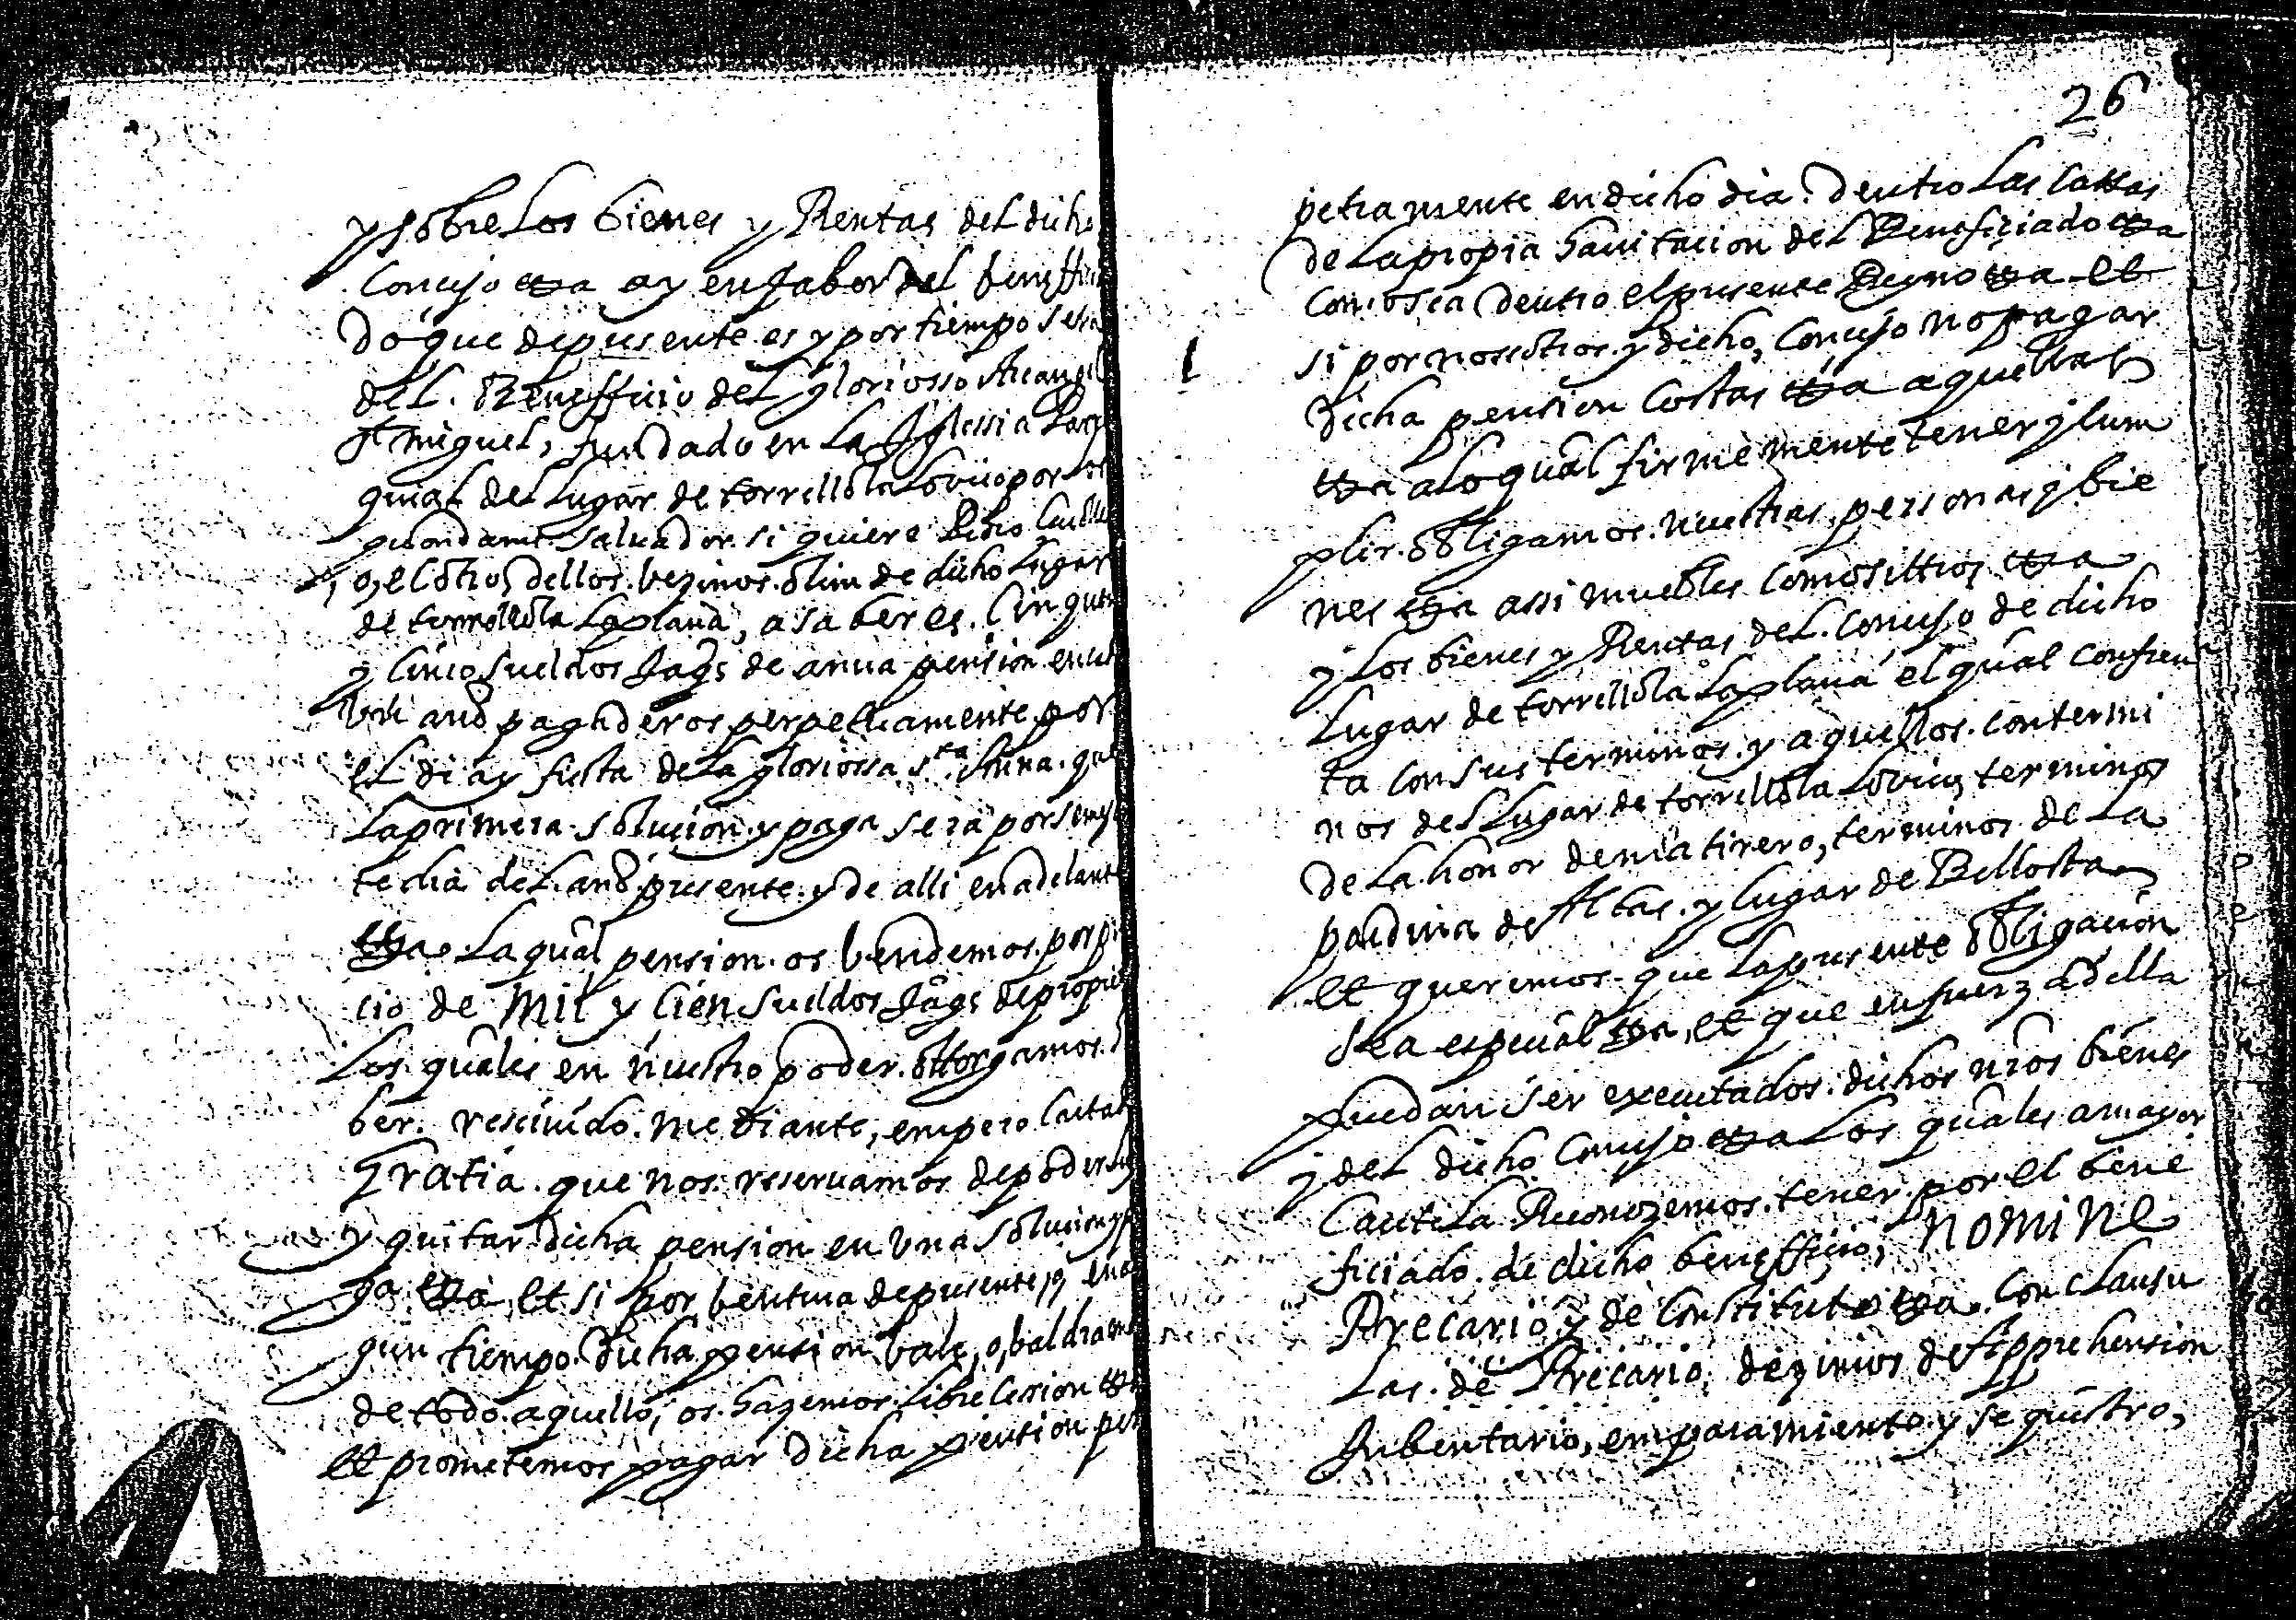 y sobre Los bienes y Rentas deL dicho
Concejo etza ay en fabor del beneffiçia
do que depresente es y por tiempo sera
deL. Beneffiçio deL gloriosso Arcangel
St miguel, fundado en La Iglessia Parro
quiaL deL Lugar de torrellola Lobico por Los
quondam Salvador si quiere Pedro
o, el otro dellos. bezinos. olim de dicho Lugar
de torrellola Laplana, a saber es. Cinquen
y Cinco Sueldos Jaqs de anua pension en cada
Un año pagaderos perpetuamente por
eL dia y fiesta de La gloriossa Sta Anna. que
La primera. soluçion y paga sera por semeja
te dia deL año. presente. y de alli en adelante
etza La qual pension. os bendemos. por pre
cio de Mil y Cien Sueldos Jaqs de propied
Los. quales en nuestro poder. ottorgamos
ber. resciuido. mediante, empero Carta de
Gratia. que nos. reseruamos de poder Luyr
y quitar dicha pension en Una Solucion y pa
ga etza, et si por bentura depresente, o, en al
gun tiempo. dicha pension bale, o, baldra mas
de todo. aquello, os. hazemos. libre Cession etza
et prometemos pagar dicha pension per
26
petuamente en dicho dia. Dentro Las Cassas
de La propia hauitacion deL Beneficiado etza
Con. osea Dentro el presente Reyno etza et
si por nossotros. y dicho, Concejo no pagar
Dicha pension Costas etza aquellas
etza a Lo qual firmemente tener y Cum
plir. obligamos. nuestras, personas y bie
nes etza assi muebles Como sittios etza
y Los bienes y Rentas deL. Concejo de dicho
Lugar de torrellola Laplana el qual Confron
ta con sus terminos. y aquellos. con termi
nos deL Lugar de torrellola Lobico, terminos
de La honor de matirero, terminos. de La
pardina de Altas. y lugar de Bellosta
et queremos. que La presente obligacion
sea espeçial etza, et que en fuerza della
puedan ser executados. dichos nros bienes
y deL dicho Concejo etza Los quales a mayor
Cautela Reconozemos. tener. por el bene
ficiado. de dicho beneffiçio, nomine
Precario y de Constituto etza. Con Clausu
Las. de Precario, dezimos de Apprehension
Inbentario, emparamiento y sequestro,